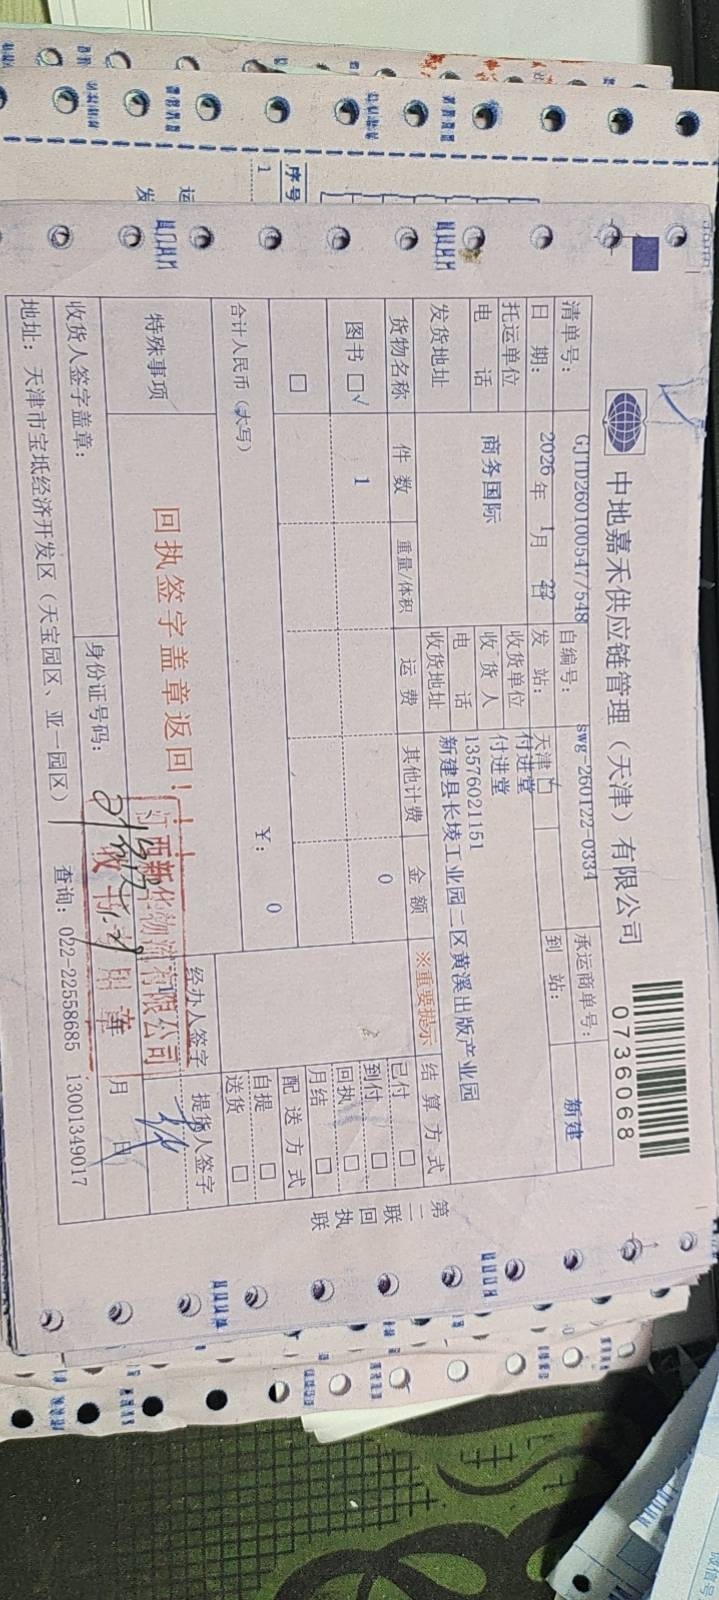 中地嘉禾供应链管理（天津）有限公司
0736068
清单号： GJTD260100547/548 自编号： swg-260122-0334 承运商单号：
日 期： 2026 年 1 月 日 发 站： 天津 到 站： 新建
托运单位 商务国际 收货单位 付进堂
收 货 人 付进堂
电 话 电 话 13576021151
发货地址 收货地址 新建县长堎工业园二区黄溪出版产业园
货物名称 件 数 重量/体积 运 费 其他计费 金 额 ※重要提示 结 算 方 式
图书 □√ 1 0
□
已付 □
到付 □
回执 □
月结 □
合计人民币（大写） ￥： 0
配 送 方 式
自提 □
送货 □
特殊事项 回执签字盖章返回！
经办人签字 提货人签字
江西新华物流有限公司
收货人签字盖章： 身份证号码： 月 日
地址：天津市宝坻经济开发区（天宝园区、亚一园区） 查询：022-22558685 13001349017
第二联 回执联
序号
1
运
发